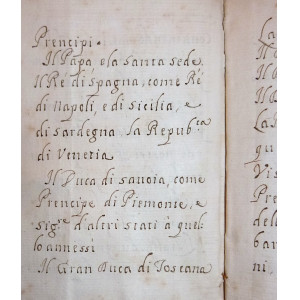 Prencipi.
Il Papa, o la santa sede
Il Ré di spagna, come Ré
di Napoli, e di sicilia, e
di sardegna, la Repub.ca
di Venetia
Il Duca di savoia, come
Prencipe di Piemonte, e
sig.re d'altri stati à quel-
lo annessi
Il Gran Duca di Toscana
La
Il
Il
Il D
La R
qu
Vis
Pren
dell
bar
ni
Il